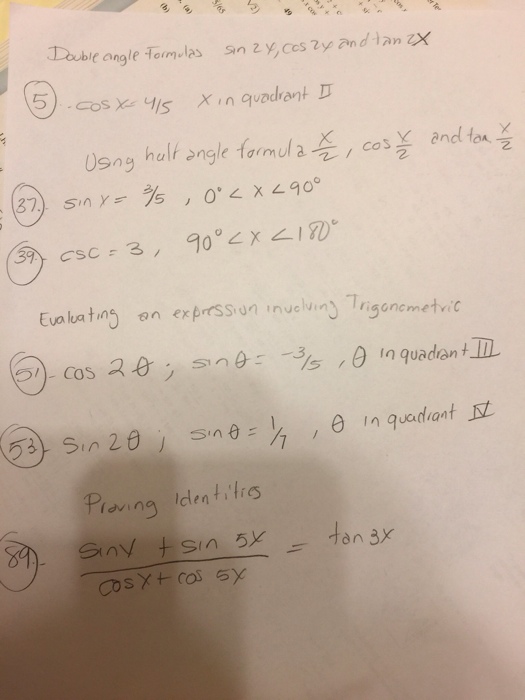 Double angle Formulas sin 2x, cos 2x and tan 2x
5. cos x = 4/5 x in quadrant II
Usng half angle formula x/2, cos x/2 and tan x/2
37. sin x = 3/5, 0° < x < 90°
39. csc = 3, 90° < x < 180°
Evaluating an expression involving Trigonometric
51. cos 2θ; sin θ = -3/5, θ in quadrant III
53. sin 2θ; sin θ = 1/7, θ in quadrant IV
Proving Identities
89. sin x + sin 5x / cos x + cos 5x = tan 3x